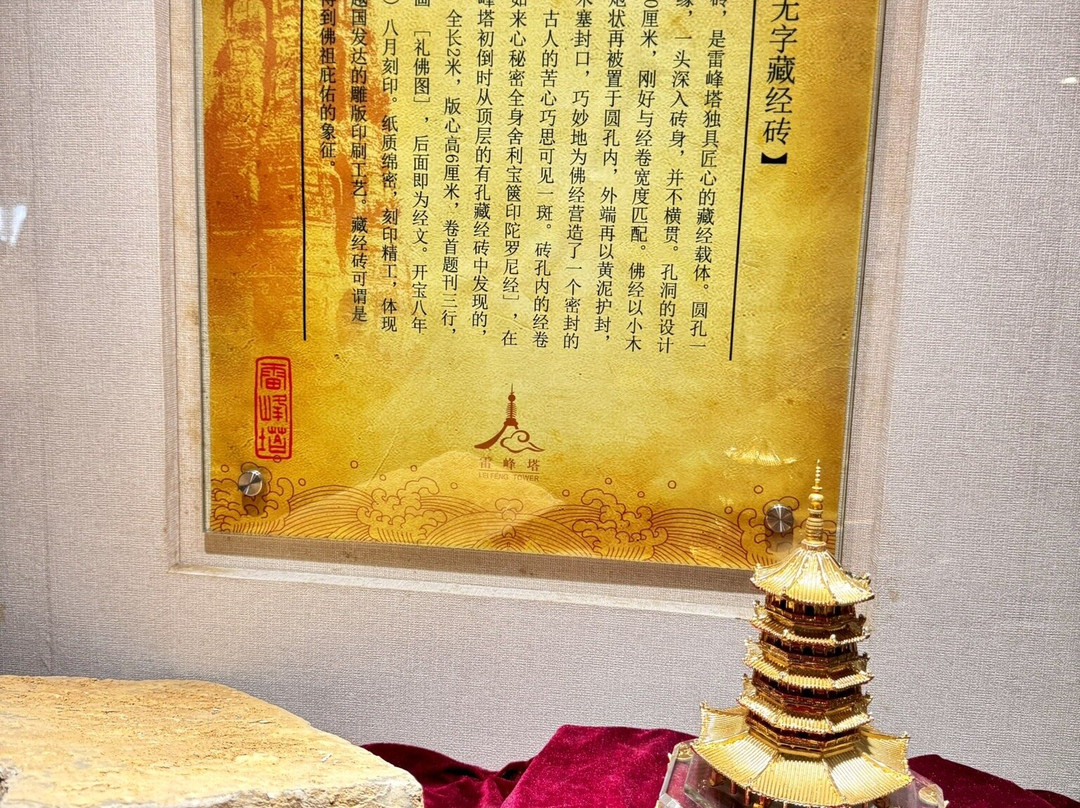 无字藏经砖】
砖，是雷峰塔独具匠心的藏经载体。圆孔一
缘，一头深入砖身，并不横贯。孔洞的设计
0厘米，刚好与经卷宽度匹配。佛经以小木
炮状再被置于圆孔内，外端再以黄泥护封，
木塞封口，巧妙地为佛经营造了一个密封的
古人的苦心巧思可见一斑。砖孔内的经卷
如来心秘密全身舍利宝箧印陀罗尼经］，在
峰塔初倒时从顶层的有孔藏经砖中发现的，
全长2米，版心高6厘米，卷首题刊三行，
画［礼佛图］，后面即为经文。开宝八年
）八月刻印。纸质绵密，刻印精工，体现
越国发达的雕版印刷工艺。藏经砖可谓是
得到佛祖庇佑的象征。
雷峰塔
雷峰塔
LEIFENG TOWER